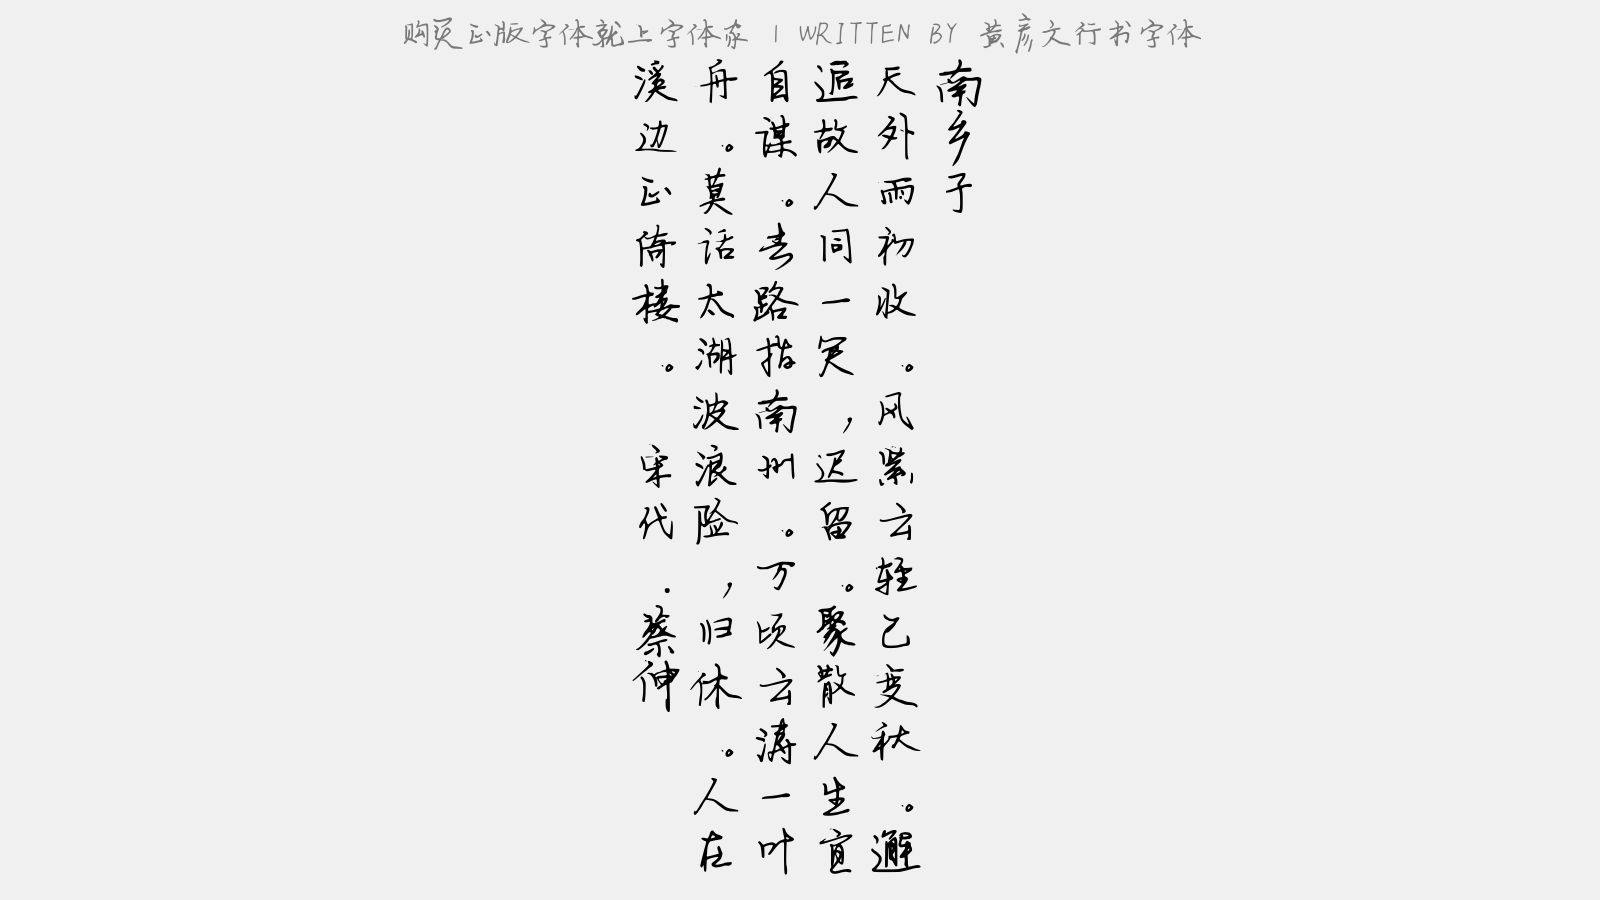 购买正版字体就上字体家 | WRITTEN BY 黄彦文行书字体
南乡子
天外雨初收。风紧云轻已变秋。邂
逅故人同一笑，迟留。聚散人生宜
自谋。去路指南州。万顷云涛一叶
舟。莫话太湖波浪险，归休。人在
溪边正倚楼。 宋代.蔡伸